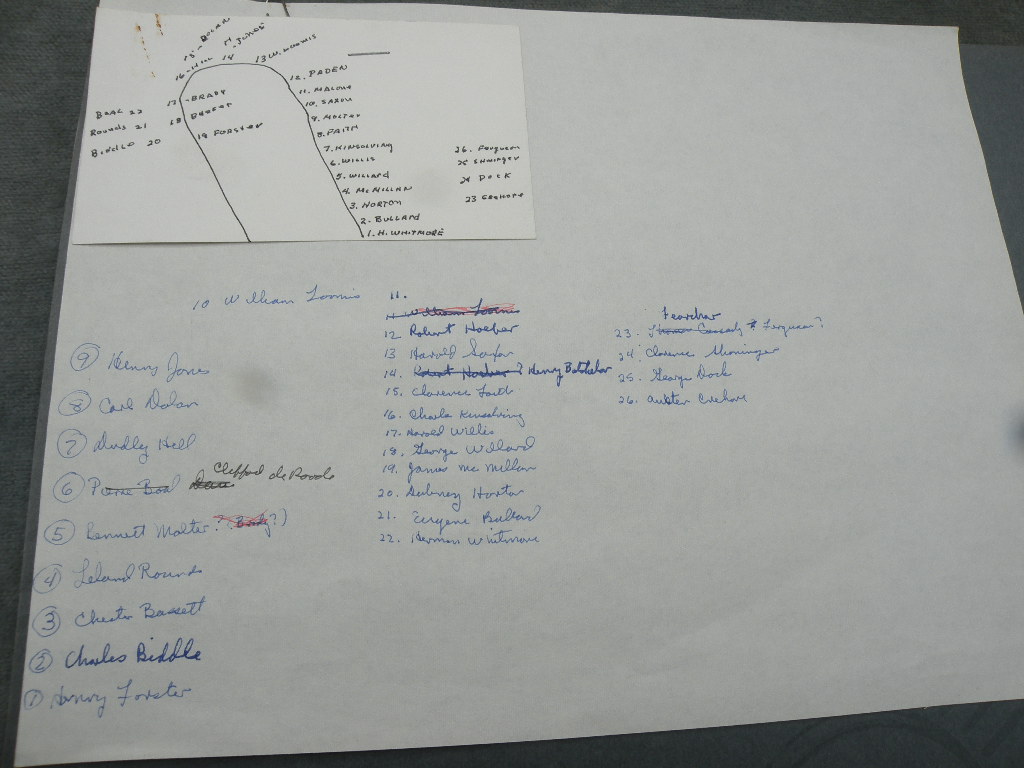 15 - DOLAN
14 - JONES
16 - HILL
14
13 W. LOOMIS
12. PADEN
11. MALONE
10. SAXON
9. MOLTER
8. FAITH
7. KINSOLVING
6. WILLIS
5. WILLARD
4. McMILLAN
3. NORTON
2 - BULLARD
1. H. WHITMORE
17 - BRADY
18
19 FORSTER
BOAL 22
ROUNDS 21
BIDDLE 20
26. Ferguson
25
24 DOCK
23
10 William Loomis
⑨ Henry Jones
⑧ Carl Dolan
⑦ Dudley Hill
⑥ Pierre Boal Clifford de Roode
⑤ Kennett Molter ? Brady ?)
④ Leland Rounds
③ Chester Bassett
② Charles Biddle
① Henry Forster
11.
11 William Loomis
12 Robert Hoeber
13 Harold Saxon
14. Robert Hoeber ? Henry Batchelor
15. Clarence Faith
16. Charles Kinsolving
17. Harold Willis
18. George Willard
19. James McMillan
20. Norton
21. Eugene Bullard
22. Herman Whitmore
Fearchar
23. Thomas Cassady ? Ferguson ?
24. Clarence Shoninger
25. George Dock
26. Austen Crehore